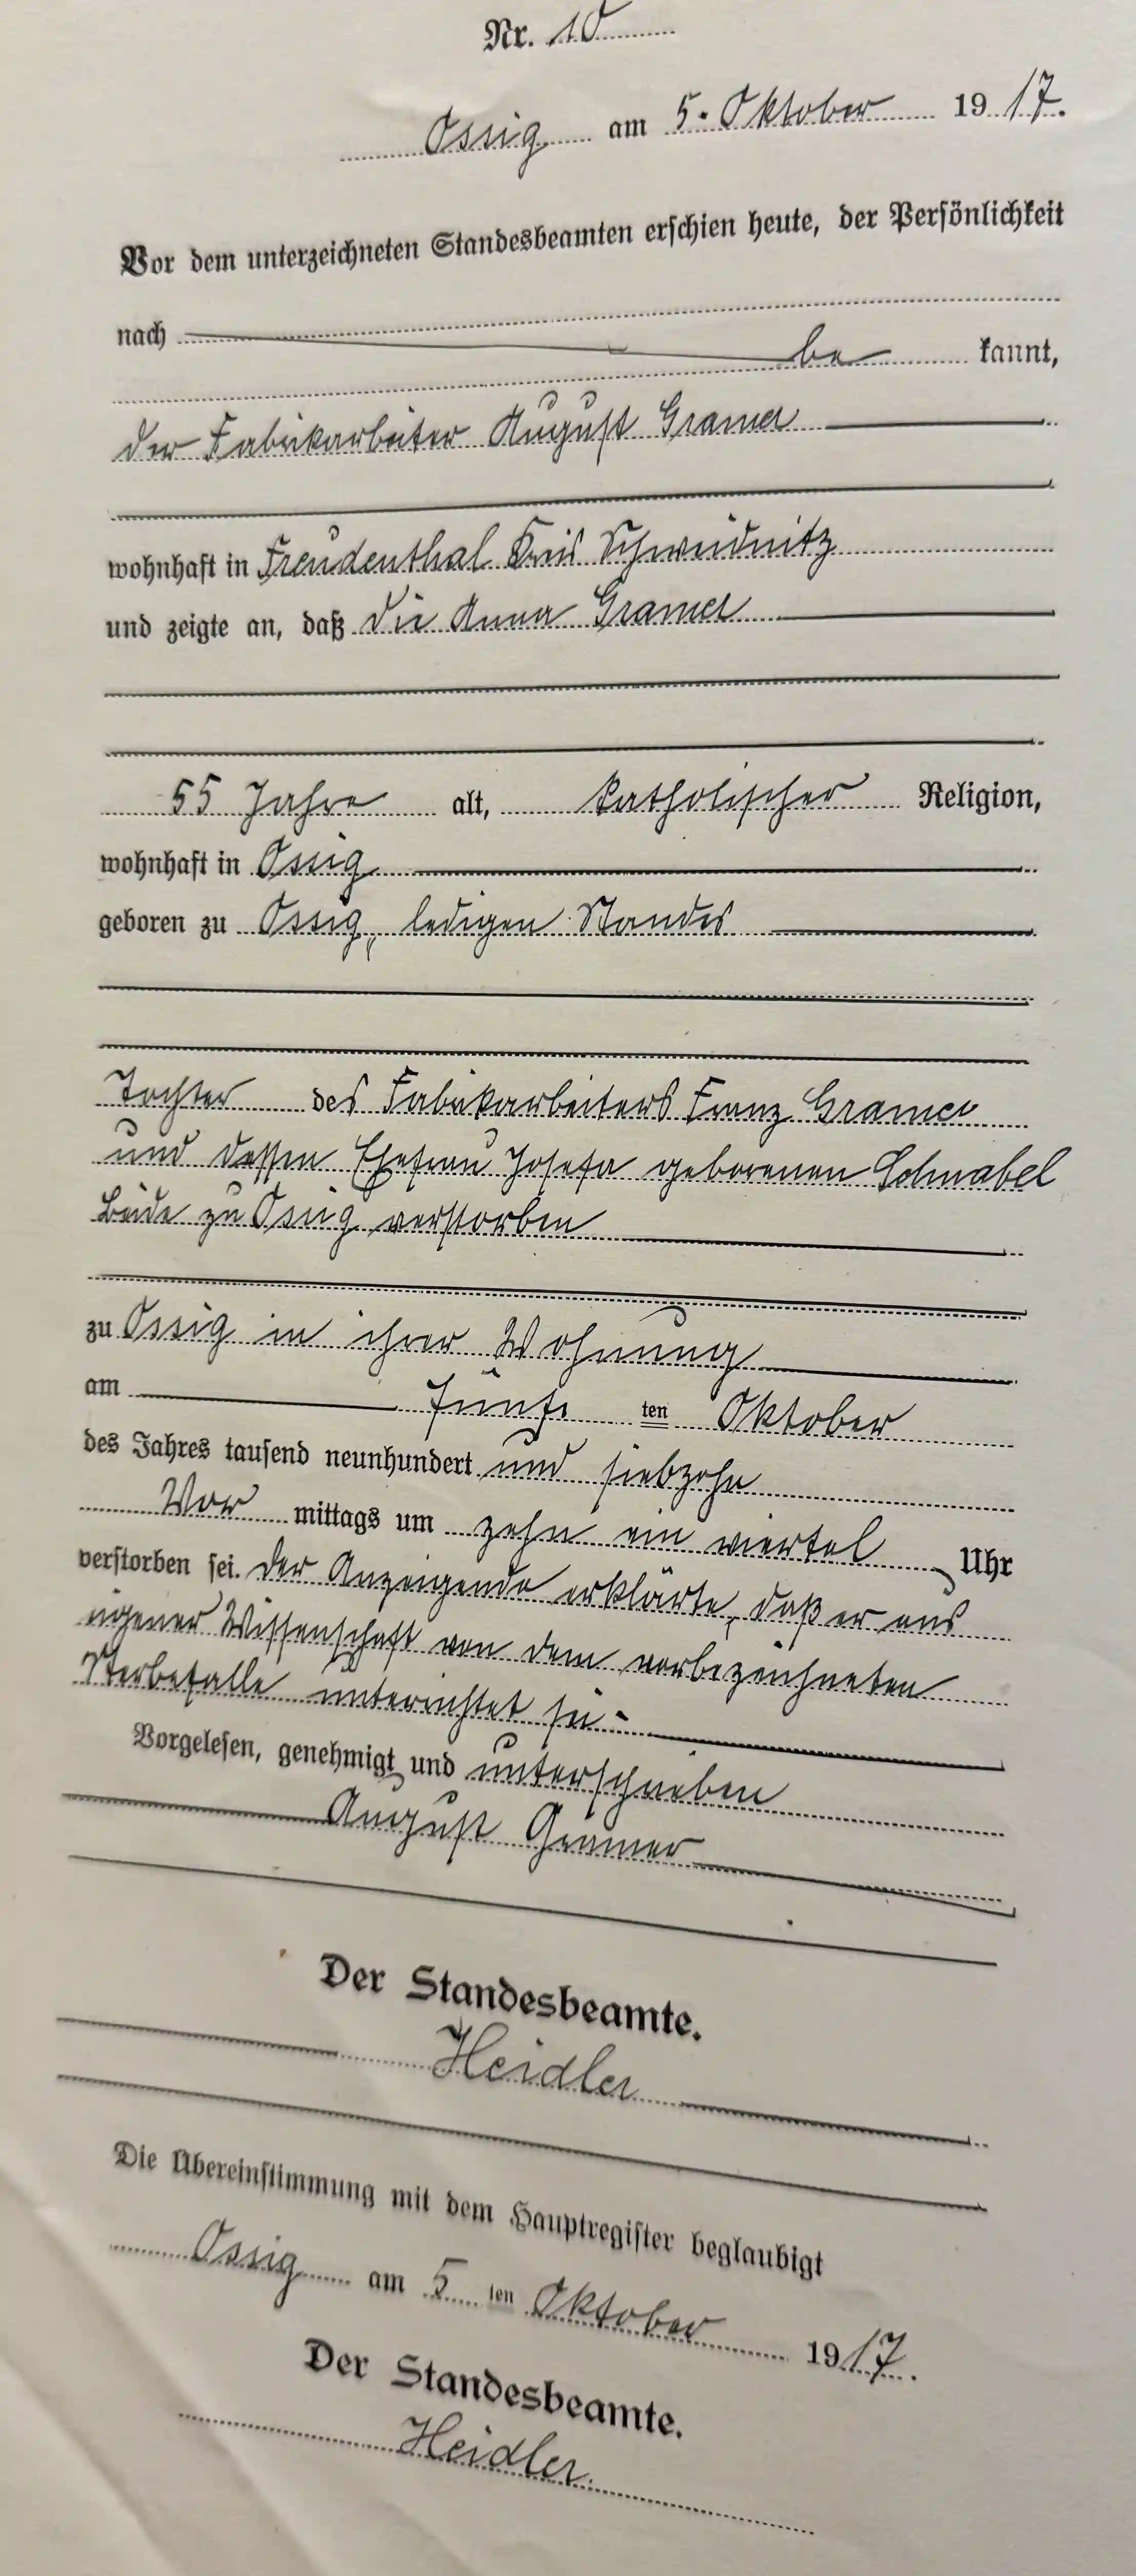 Nr. 10
Ossig am 5. Oktober 1917.
Vor dem unterzeichneten Standesbeamten erschien heute, der Persönlichkeit
nach
be kannt,
der Fabrikarbeiter August Gramer
wohnhaft in Freudenthal Kreis Schweidnitz
und zeigte an, daß die Anna Gramer
55 Jahre alt, katholischer Religion,
wohnhaft in Ossig
geboren zu Ossig, ledigen Standes
Tochter des Fabrikarbeiters Franz Gramer
und dessen Ehefrau Josefa geborenen Schnabel
beide zu Ossig verstorben
zu Ossig in ihrer Wohnung
am fünf ten Oktober
des Jahres tausend neunhundert und siebzehn
Vor mittags um zehn ein viertel Uhr
verstorben sei. Der Anzeigende erklärte, daß er aus
eigener Wissenschaft von dem vorbezeichneten
Sterbefalle unterrichtet sei.
Vorgelesen, genehmigt und unterschrieben
August Gramer
Der Standesbeamte.
Heidler
Die Übereinstimmung mit dem Hauptregister beglaubigt
Ossig am 5 ten Oktober 1917.
Der Standesbeamte.
Heidler.